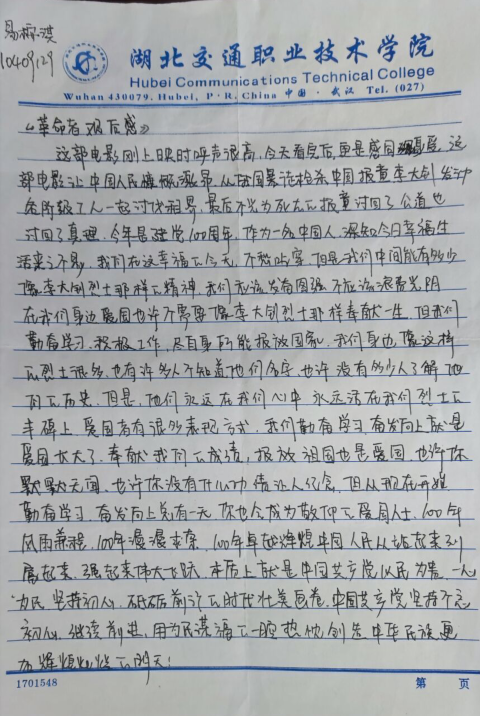 易
1040929
湖北交通职业技术学院
Hubei Communications Technical College
Wuhan 430079. Hubei, P·R. China 中国·武汉 Tel. (027)
《革命者观后感》
这部电影刚上映时呼声很高,今天看完后更是感同 这
部电影让中国人民 李大钊发动
各阶级工人一起讨伐租界,最后不光为死去的报童讨回了公道也
讨回了真理,今年是建党100周年,作为一名中国人,深知今日幸福生
活来之不易,我们在这幸福的今天,不愁吃穿,但是我们中间能有多少
像李大钊烈士那样的精神,我们应该发奋图强不应该浪费光阴
在我们身边爱国也许不需要像李大钊烈士那样奉献一生,但我们
勤奋学习,积极工作,尽自身所能报效国家,我们身边,像这样
的烈士很多,也有许多人不知道他们名字,也许没有多少人了解他
们的历史,但是,他们永远在我们心中,永远活在我们烈士的
丰碑上,爱国者有很多表现方式,我们勤奋学习,奋发向上就是
爱国 了,奉献我们的成绩,报效祖国也是爱国,也许你
默默无闻,也许你没有什么功绩让人纪念,但从现在开始
勤奋学习,奋发向上总有一天,你也会成为敬仰的爱国人士,100年
风雨兼程,100年漫漫求索,100年卓越辉煌中国人民从站起来到
富起来,强起来伟大飞跃,本质上就是中国共产党以民为贵,一心
为民,坚持初心,砥砺前行的时代壮美画卷,中国共产党坚持不忘
初心,继续前进,用为民谋福的一腔热忱,创造中华民族更
加辉煌 的明天!
1701548 第 页